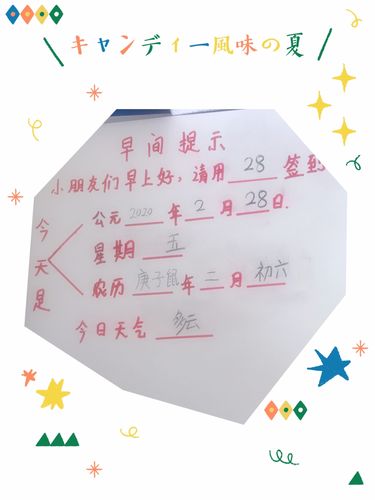 キャンディー風味の夏
早间提示
小朋友们早上好,请用 28 签到
今天是
公元 2020 年 2 月 28 日.
星期 五
农历 庚子鼠 年 二 月 初六
今日天气 多云